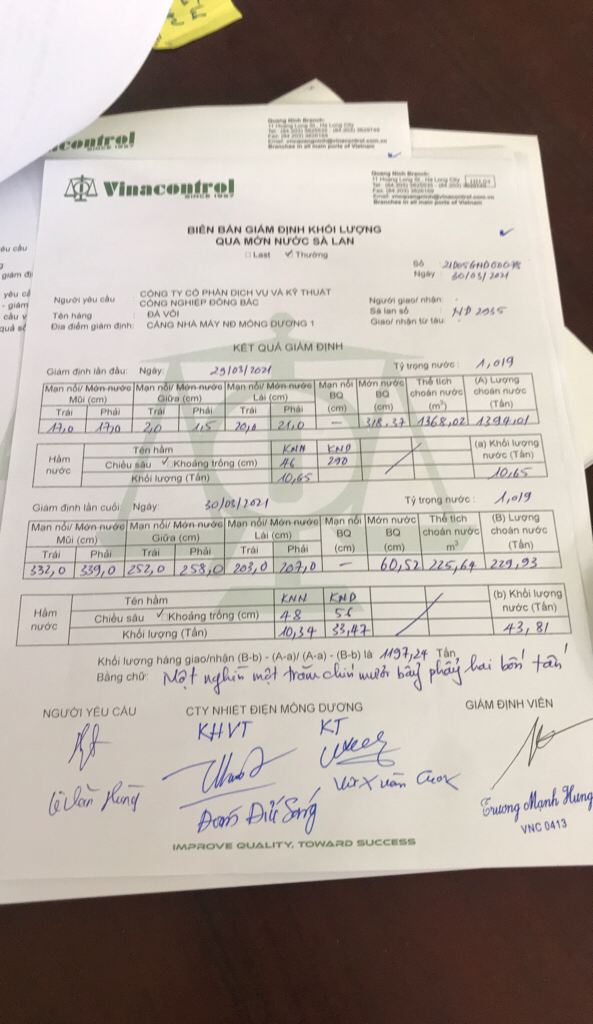 Vinacontrol
SINCE 1957
Quang Ninh Branch:
11 Hoang Long St., Ha Long City
Branches in all main parts of Vietnam
BIÊN BẢN GIÁM ĐỊNH KHỐI LƯỢNG
QUA MỚN NƯỚC SÀ LAN
□ Last ✓ Thường
Số
Ngày 30/03/2021
Người yêu cầu CÔNG TY CỔ PHẦN DỊCH VỤ VÀ KỸ THUẬT
CÔNG NGHIỆP ĐÔNG BẮC
Người giao/ nhận:
Tên hàng ĐÁ VÔI
Sà lan số NĐ 2935
Địa điểm giám định: CẢNG NHÀ MÁY NĐ MÔNG DƯƠNG 1
Giao/ nhận từ tàu:
KẾT QUẢ GIÁM ĐỊNH
Giám định lần đầu: Ngày: 29/03/2021 Tỷ trọng nước: 1,019
Mạn nổi/ Mớn nước Mũi (cm) Mạn nổi/ Mớn nước Giữa (cm) Mạn nổi/ Mớn nước Lái (cm) Mạn nổi BQ (cm) Mớn nước BQ (cm) Thể tích choán nước (m³) (A) Lượng choán nước (Tấn)
Trái Phải Trái Phải Trái Phải
17,0 17,0 2,0 1,5 20,0 21,0 — 318,37 1368,02 1394,01
Hầm nước Tên hầm KNN KND (a) Khối lượng nước (Tấn)
Chiều sâu ✓ Khoảng trống (cm) 46 290
Khối lượng (Tấn) 10,65 10,65
Giám định lần cuối: Ngày 30/03/2021 Tỷ trọng nước: 1,019
Mạn nổi/ Mớn nước Mũi (cm) Mạn nổi/ Mớn nước Giữa (cm) Mạn nổi/ Mớn nước Lái (cm) Mạn nổi BQ (cm) Mớn nước BQ (cm) Thể tích choán nước m³ (B) Lượng choán nước (Tấn)
Trái Phải Trái Phải Trái Phải
332,0 339,0 252,0 258,0 203,0 207,0 — 60,52 225,64 229,93
Hầm nước Tên hầm KNN KND (b) Khối lượng nước (Tấn)
Chiều sâu ✓ Khoảng trống (cm) 48 56
Khối lượng (Tấn) 10,34 33,47 43,81
Khối lượng hàng giao/nhận (B-b) - (A-a)/ (A-a) - (B-b) là 1197,24 Tấn
Bằng chữ: Một nghìn một trăm chín mươi bảy phẩy hai bốn tấn
NGƯỜI YÊU CẦU CTY NHIỆT ĐIỆN MÔNG DƯƠNG GIÁM ĐỊNH VIÊN
KHVT KT
Lê Văn Hùng
Trương Mạnh Hưng
VNC 0413
IMPROVE QUALITY, TOWARD SUCCESS